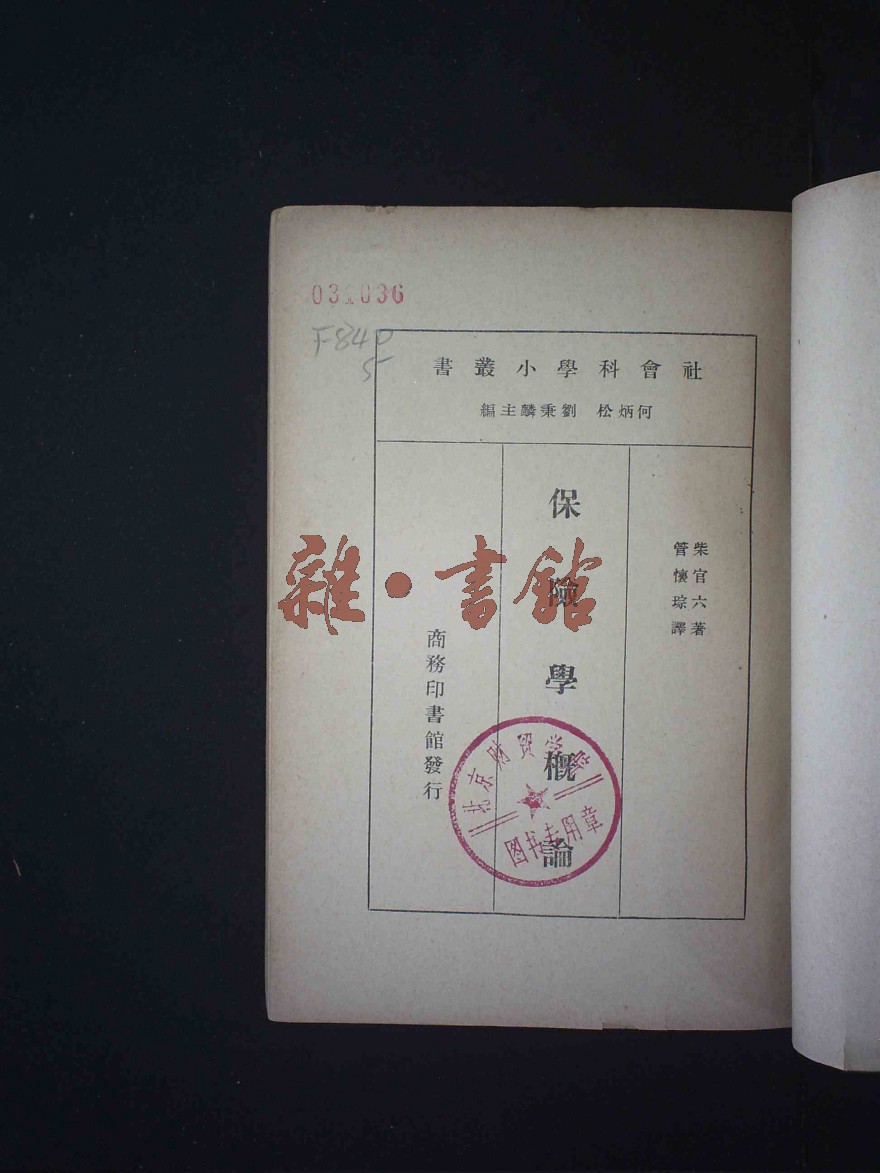 031036
F840
5
社會科學小叢書
何炳松 劉秉麟主編
柴官六著
管懷琮譯
保險學概論
商務印書館發行
雜·書館
北京财贸学院
图书专用章